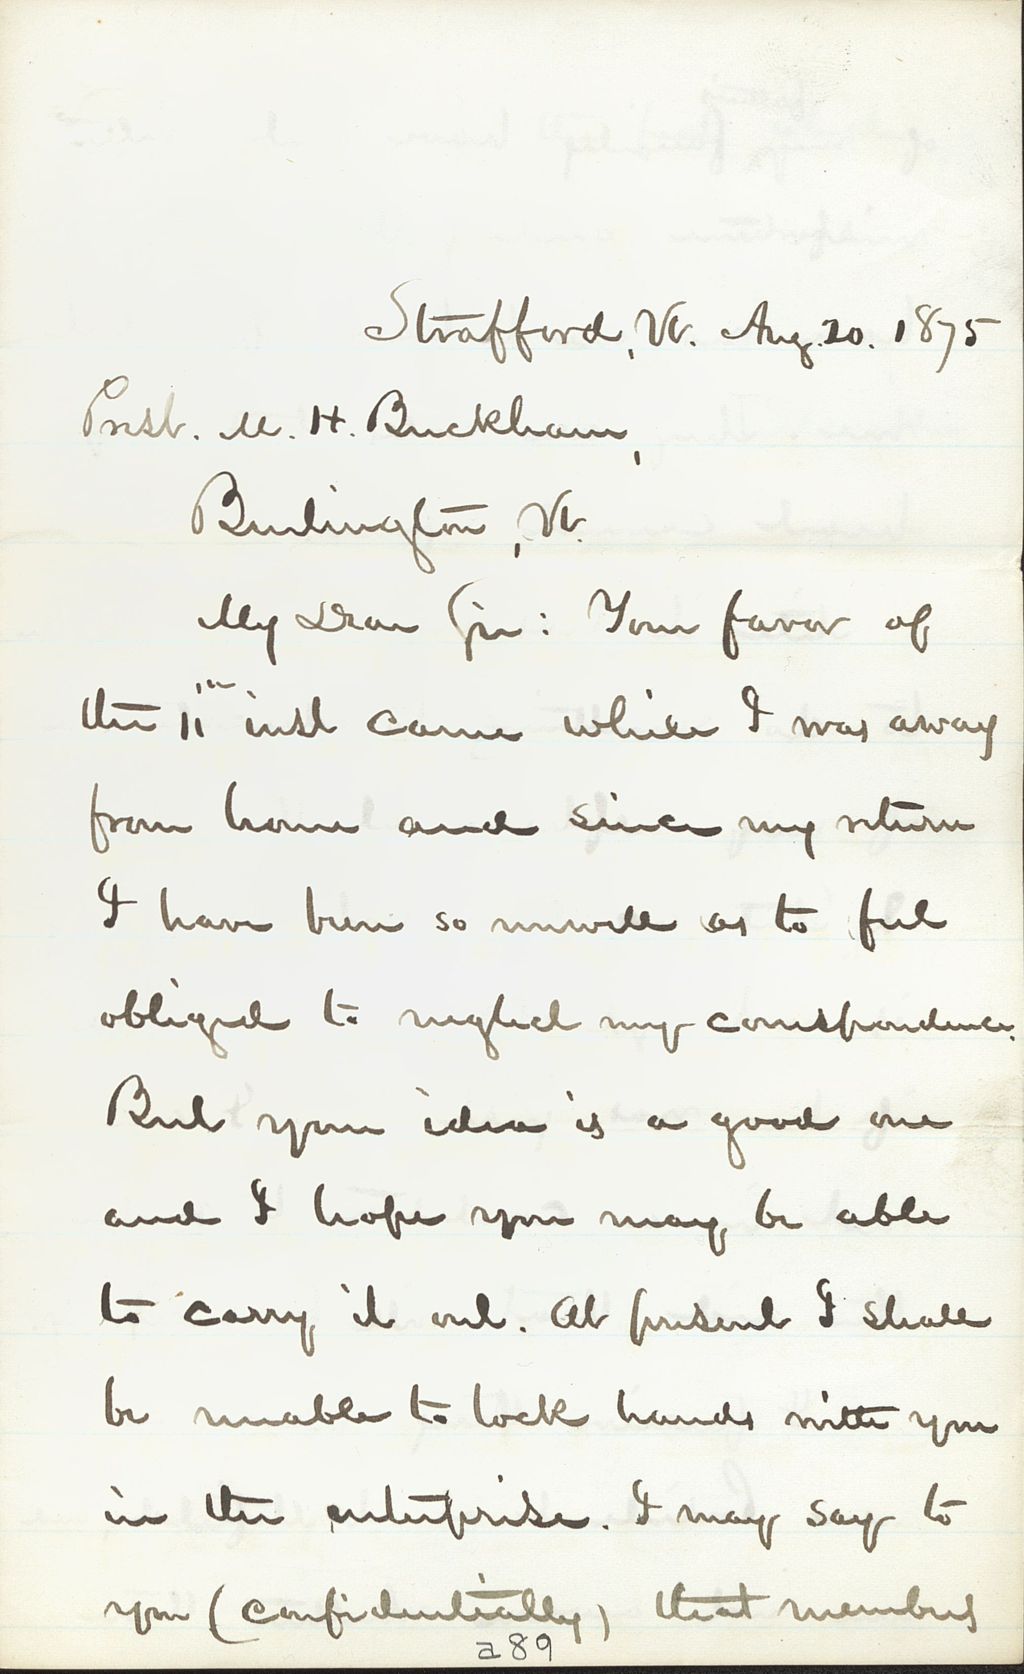 Strafford, Vt. Aug. 20. 1875
Prest. M. H. Buckham,
Burlington, Vt.
My Dear Sir: Your favor of
the 11th inst came while I was away
from home and since my return
I have been so unwell as to feel
obliged to neglect my correspondence.
But your idea is a good one
and I hope you may be able
to carry it out. At present I shall
be unable to lock hands with you
in the enterprise. I may say to
you (confidentially) that members
a89